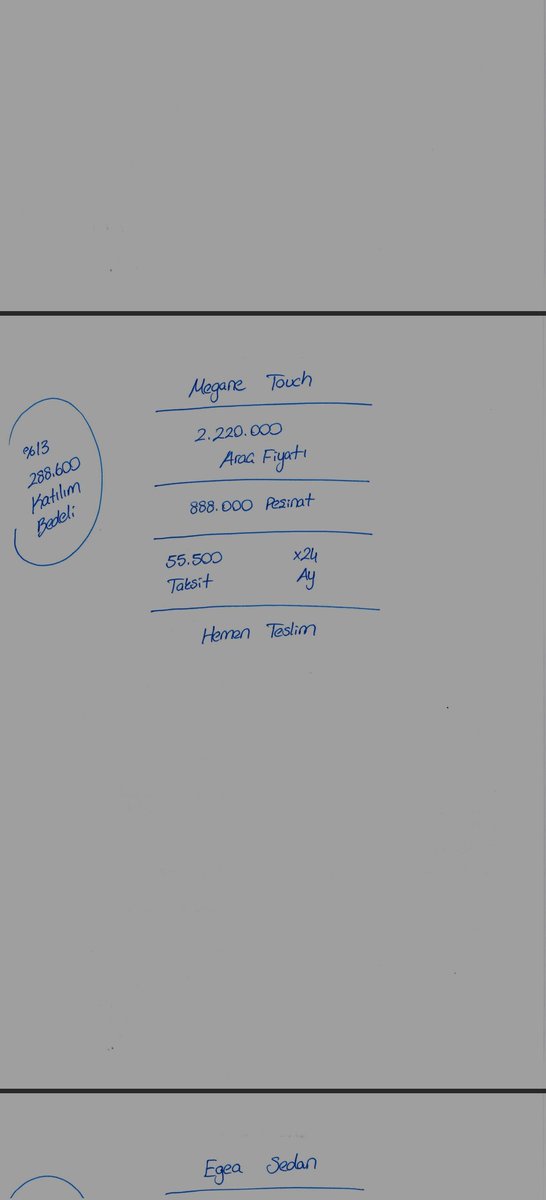 Megane Touch
2.220.000
Araç Fiyatı
888.000 Peşinat
55.500 x24
Taksit Ay
Hemen Teslim
%13
288.600
Katılım
Bedeli
Egea Sedan